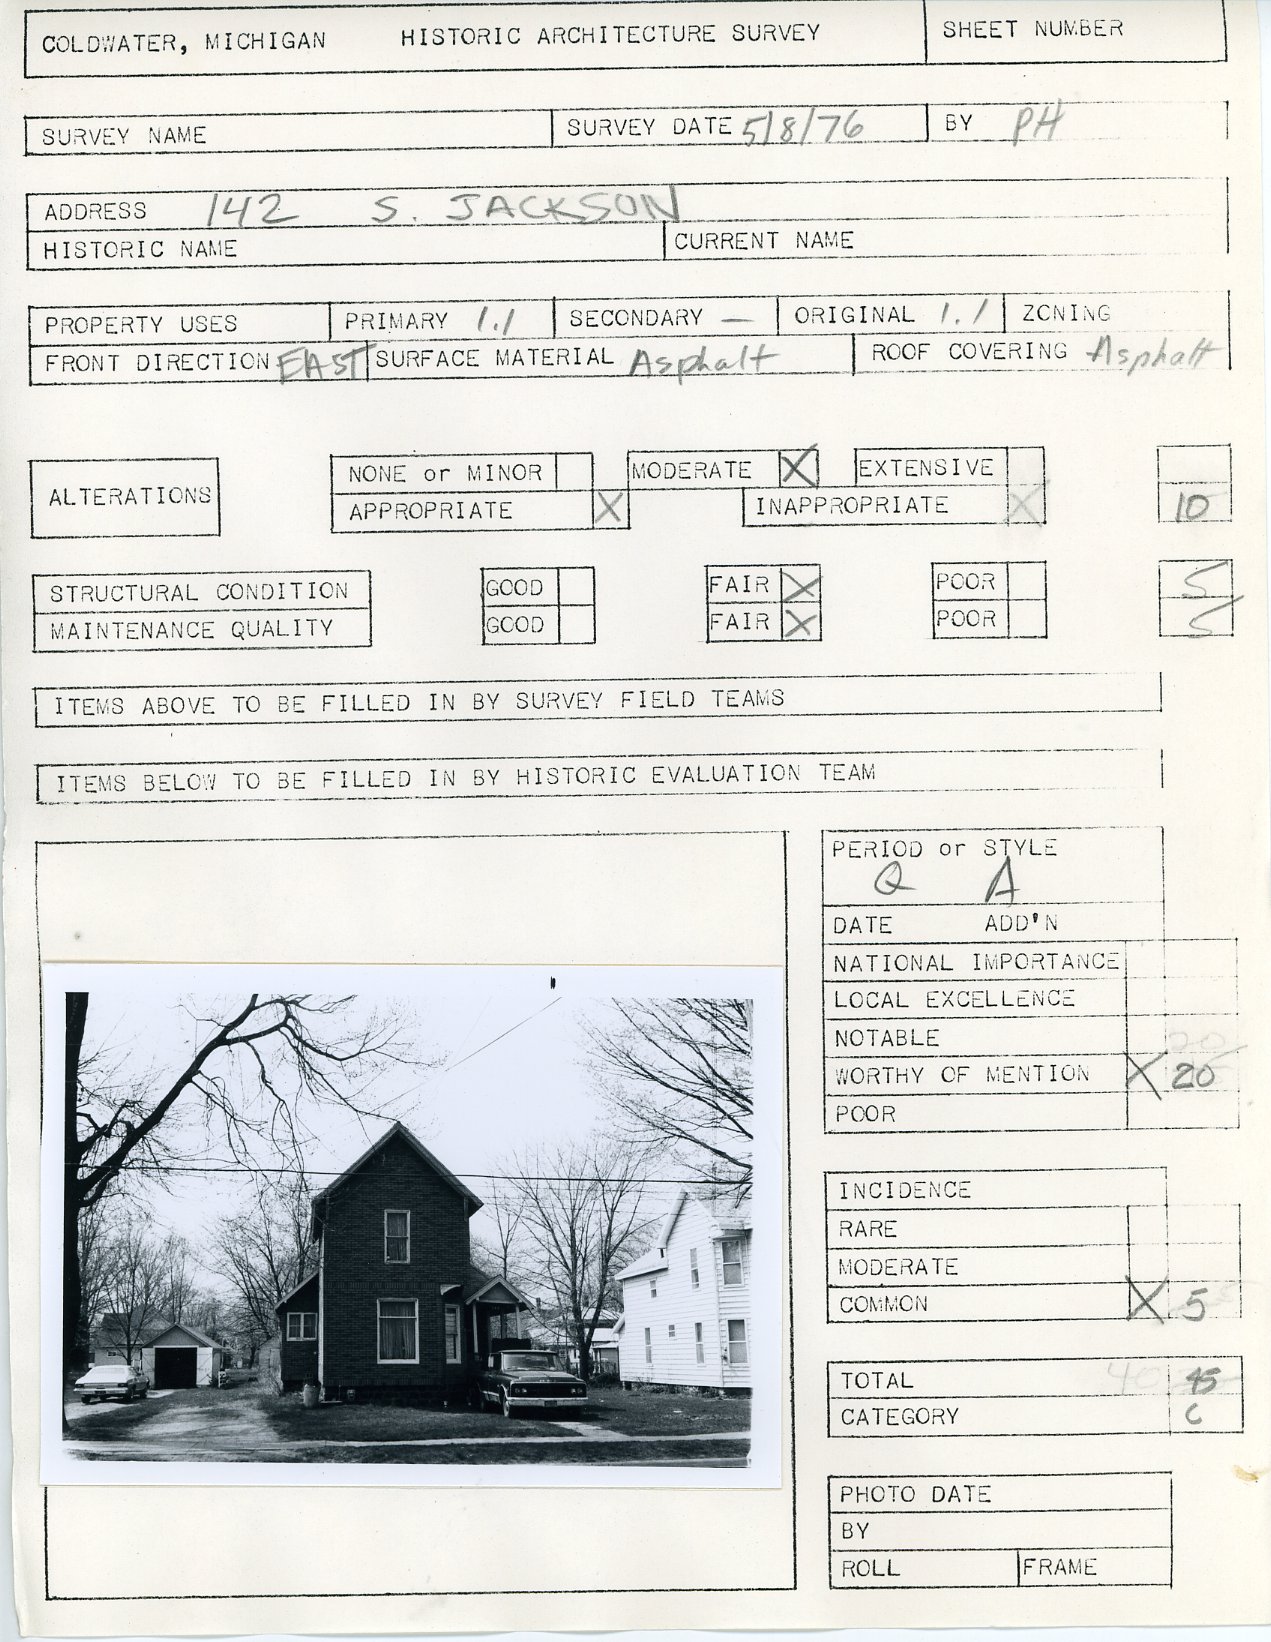 COLDWATER, MICHIGAN HISTORIC ARCHITECTURE SURVEY SHEET NUMBER
SURVEY NAME SURVEY DATE 5/8/76 BY PH
ADDRESS 142 S. JACKSON
HISTORIC NAME CURRENT NAME
PROPERTY USES PRIMARY 1.1 SECONDARY — ORIGINAL 1.1 ZONING
FRONT DIRECTION EAST SURFACE MATERIAL Asphalt ROOF COVERING Asphalt
NONE or MINOR MODERATE X EXTENSIVE
ALTERATIONS
APPROPRIATE X INAPPROPRIATE X 10
STRUCTURAL CONDITION GOOD FAIR X POOR 5
MAINTENANCE QUALITY GOOD FAIR X POOR 5
ITEMS ABOVE TO BE FILLED IN BY SURVEY FIELD TEAMS
ITEMS BELOW TO BE FILLED IN BY HISTORIC EVALUATION TEAM
PERIOD or STYLE
Q A
DATE ADD'N
NATIONAL IMPORTANCE
LOCAL EXCELLENCE
NOTABLE 20
WORTHY OF MENTION X 20
POOR
INCIDENCE
RARE
MODERATE
COMMON X 5
TOTAL 40 45
CATEGORY C
PHOTO DATE
BY
ROLL FRAME